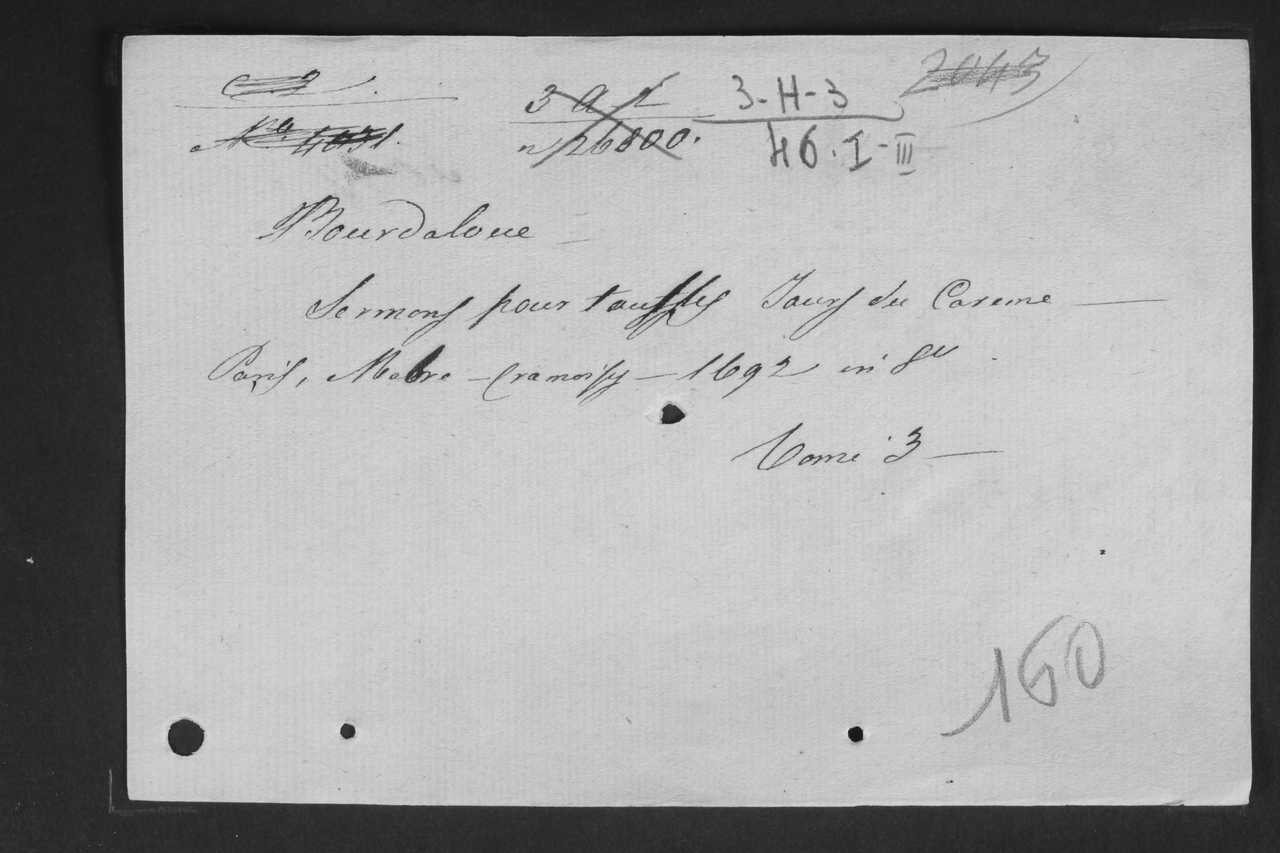 3 A 2
n 26800.
3-H-3
46. I-III
2043
Bourdaloue
Sermons pour tous les Jours du Careme —
Paris, Mabre-Cramoisy — 1692 in 8°
Tome 3 —
160